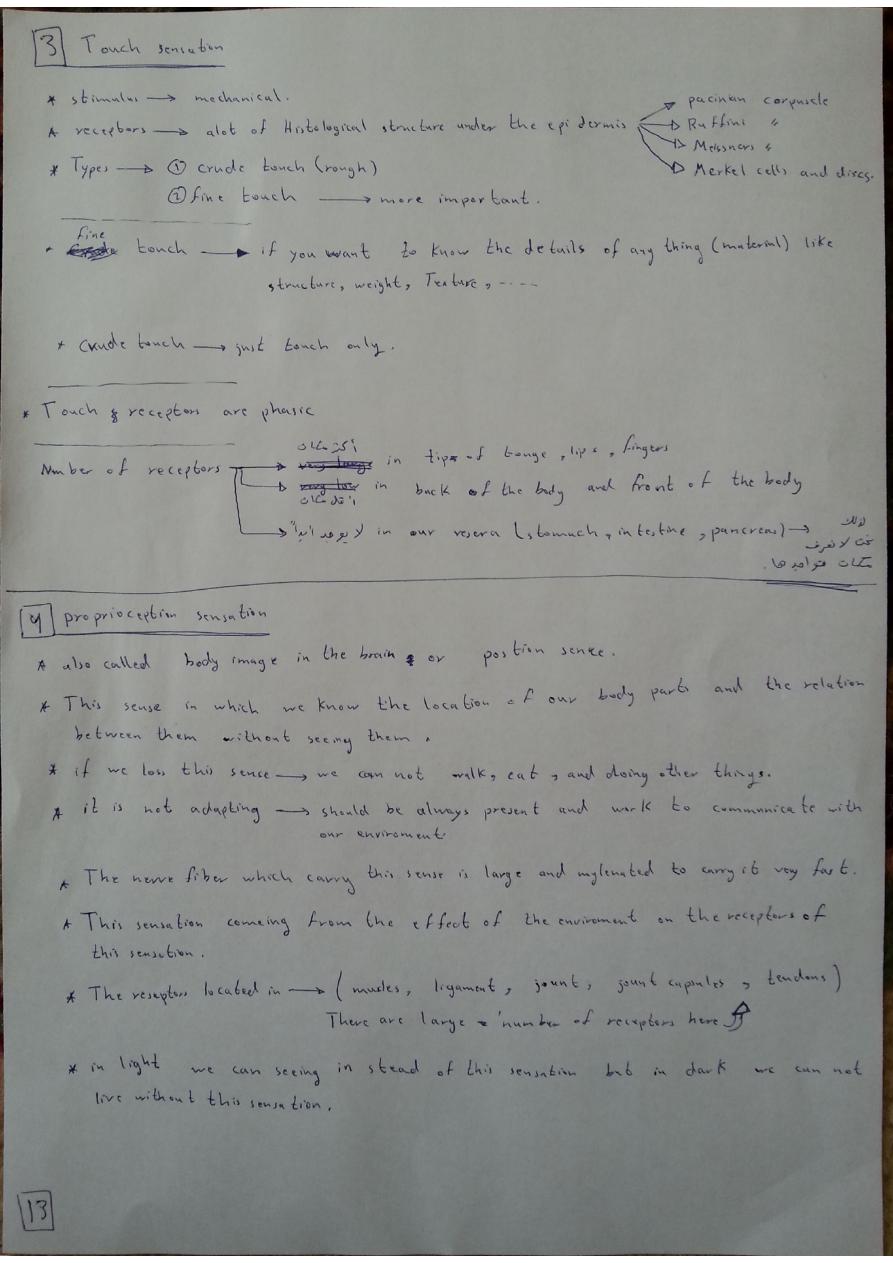 3 Touch sensation
* stimulus → mechanical.
* receptors → alot of Histological structure under the epidermis → pacinian corpuscle
→ Ruffini "
→ Meissners "
→ Merkel cells and discs.
* Types → ① crude touch (rough)
② fine touch → more important.
* fine touch → if you want to know the details of any thing (material) like
structure, weight, Texture, ----
* crude touch → just touch only.
* Touch receptors are phasic
Number of receptors → أكثر مكان in tips of tonge, lips, fingers
→ أقل مكان in back of the body and front of the body
→ لا يوجد أبداً in our vesera (stomach, intestine, pancreas) → لذلك
نحن لا نعرف
مكان تواجدها.
4 proprioception sensation
* also called body image in the brain or postion sence.
* This sense in which we know the location of our body parts and the relation
between them without seeing them.
* if we loss this sence → we can not walk, eat, and doing other things.
* it is not adapting → should be always present and work to communicate with
our enviroment
* The nerve fiber which carry this sense is large and mylenated to carry it very fast.
* This sensation comeing from the effect of the enviroment on the receptors of
this sensation.
* The reseptors located in → (mucles, ligament, jount, jount capsules, tendons)
There are large number of receptors here
* in light we can seeing in stead of this sensation but in dark we can not
live without this sensation.
13